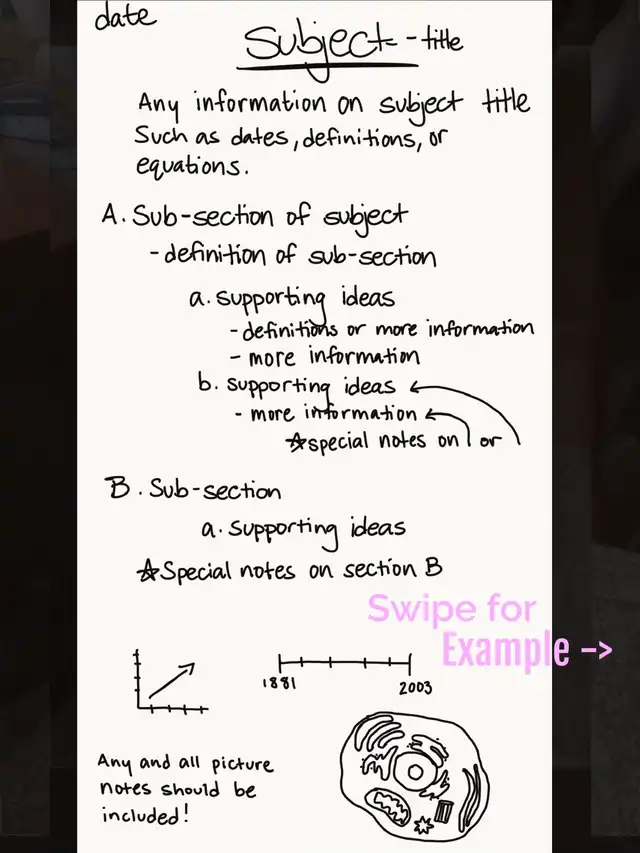 date
Subject - title
Any information on subject title
Such as dates, definitions, or
equations.
A. Sub-section of subject
- definition of sub-section
a. supporting ideas
- definitions or more information
- more information
b. supporting ideas
- more information
☆special notes on or
B. Sub-section
a. supporting ideas
☆Special notes on section B
Swipe for
Example ->
1881
2003
Any and all picture
notes should be
included!